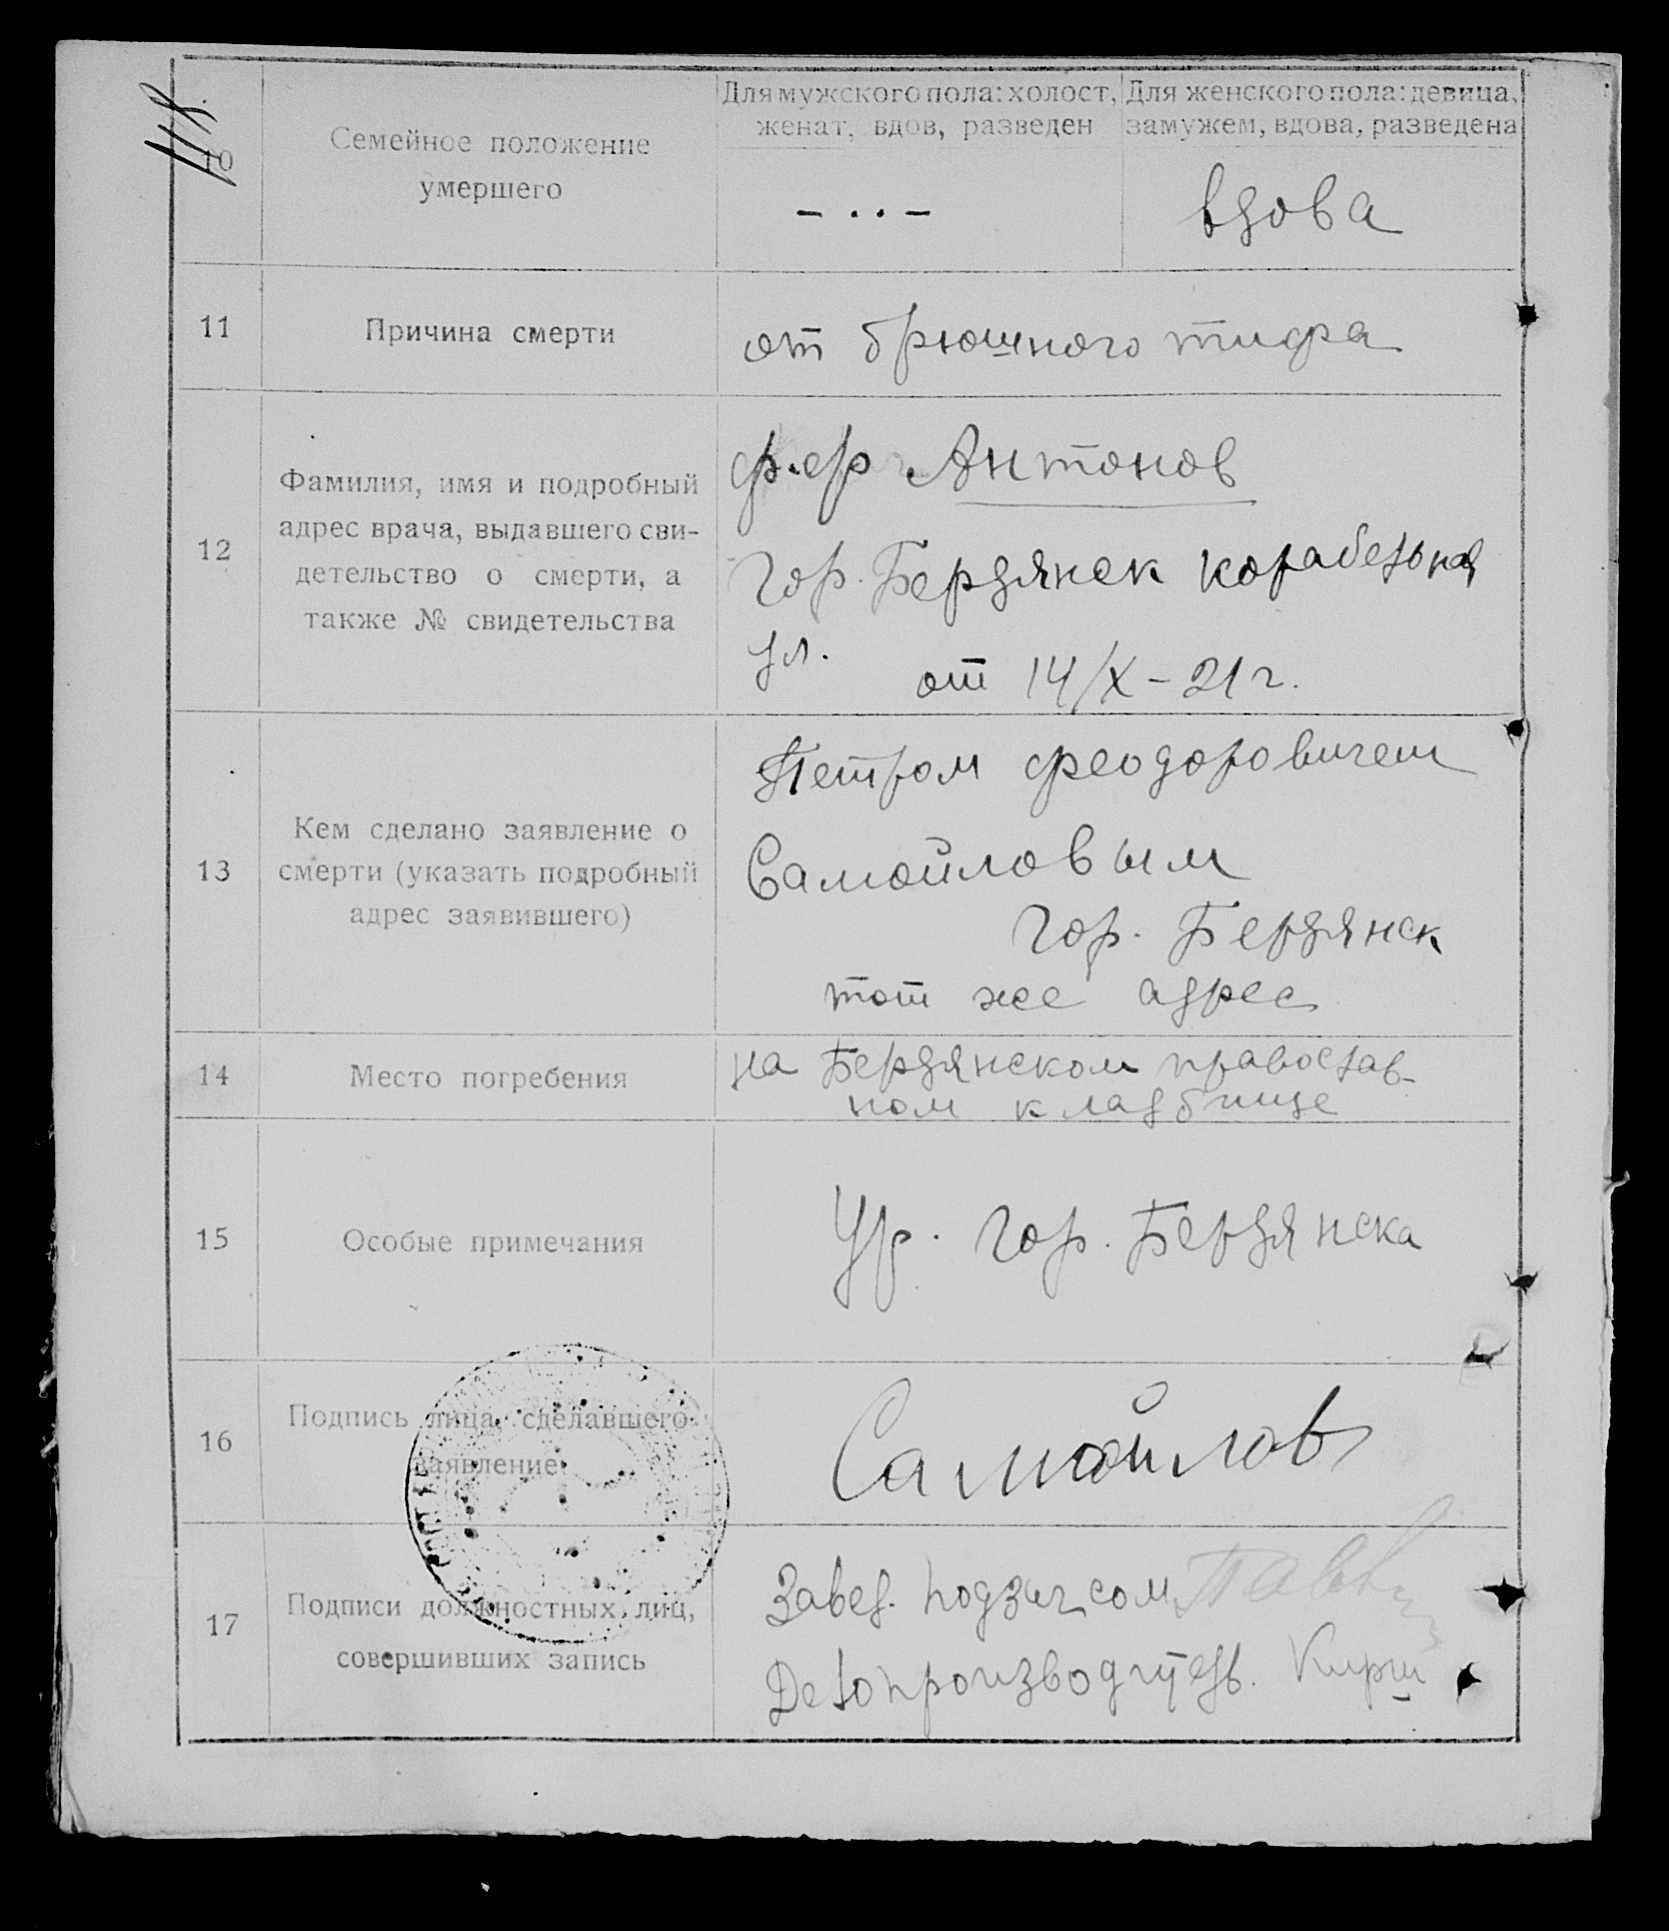 118.
Для мужского пола: холост, женат, вдов, разведен
Для женского пола: девица, замужем, вдова, разведена
10
Семейное положение
умершего
– . . –
вдова
11
Причина смерти
от брюшного тифа
12
Фамилия, имя и подробный
адрес врача, выдавшего сви-
детельство о смерти, а
также № свидетельства
ф-ер Антонов
гор. Бердянск корабельная
ул.
от 14/X – 21 г.
13
Кем сделано заявление о
смерти (указать подробный
адрес заявившего)
Петром феодоровичем
Самойловым
гор. Бердянск
тот же адрес
14
Место погребения
на Бердянском православ-
ном кладбище
15
Особые примечания
Ур. гор. Бердянска
16
Подпись лица, сделавшего
заявление
Самойлов
17
Подписи должностных лиц,
совершивших запись
Завед. подзагсом
Делопроизводитель. Кирш